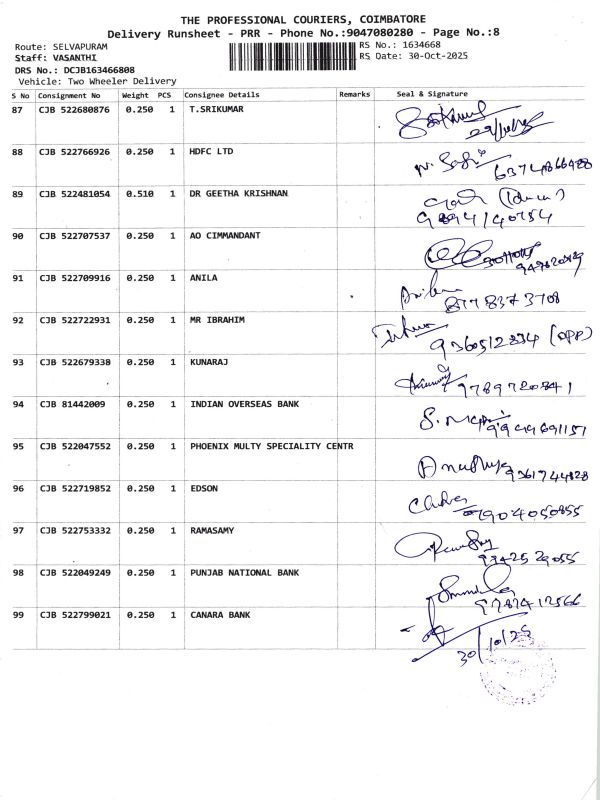 THE PROFESSIONAL COURIERS, COIMBATORE
Delivery Runsheet - PRR - Phone No.:9047080280 - Page No.:8
Route: SELVAPURAM RS No.: 1634668
Staff: VASANTHI RS Date: 30-Oct-2025
DRS No.: DCJCB163466808
Vehicle: Two Wheeler Delivery
S No Consignment No Weight PCS Consignee Details Remarks Seal & Signature
87 CJB 522680876 0.250 1 T.SRIKUMAR
88 CJB 522766926 0.250 1 HDFC LTD
6374866488
89 CJB 522481054 0.510 1 DR GEETHA KRISHNAN
9894140754
90 CJB 522707537 0.250 1 AO CIMMANDANT
91 CJB 522709916 0.250 1 ANILA
8778373708
92 CJB 522722931 0.250 1 MR IBRAHIM
9360512834 (OPP)
93 CJB 522679338 0.250 1 KUNARAJ
9789720841
94 CJB 81442009 0.250 1 INDIAN OVERSEAS BANK
9944691151
95 CJB 522047552 0.250 1 PHOENIX MULTY SPECIALITY CENTR
9361744828
96 CJB 522719852 0.250 1 EDSON
7904050855
97 CJB 522753332 0.250 1 RAMASAMY
9342529055
98 CJB 522049249 0.250 1 PUNJAB NATIONAL BANK
9787412566
99 CJB 522799021 0.250 1 CANARA BANK
30/10/25